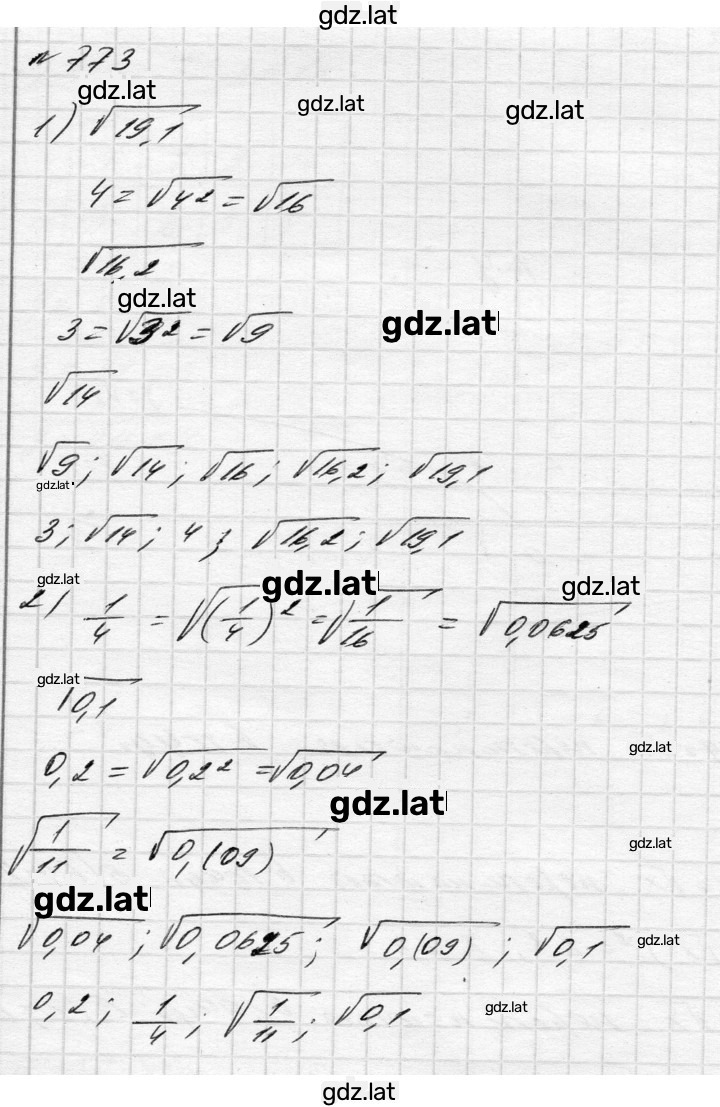 gdz.lat
№ 773
gdz.lat gdz.lat gdz.lat
1) √19,1
4 = √4² = √16
√16,2
gdz.lat
3 = √3² = √9 gdz.lat
√14
√9; √14; √16; √16,2; √19,1
gdz.lat
3; √14; 4; √16,2; √19,1
gdz.lat gdz.lat gdz.lat
2) 1/4 = √(1/4)² = √1/16 = √0,0625
gdz.lat
√0,1
gdz.lat
0,2 = √0,2² = √0,04
gdz.lat
√1/11 = √0,(09) gdz.lat
gdz.lat
√0,04; √0,0625; √0,(09); √0,1 gdz.lat
0,2; 1/4; √1/11; √0,1 gdz.lat
gdz.lat